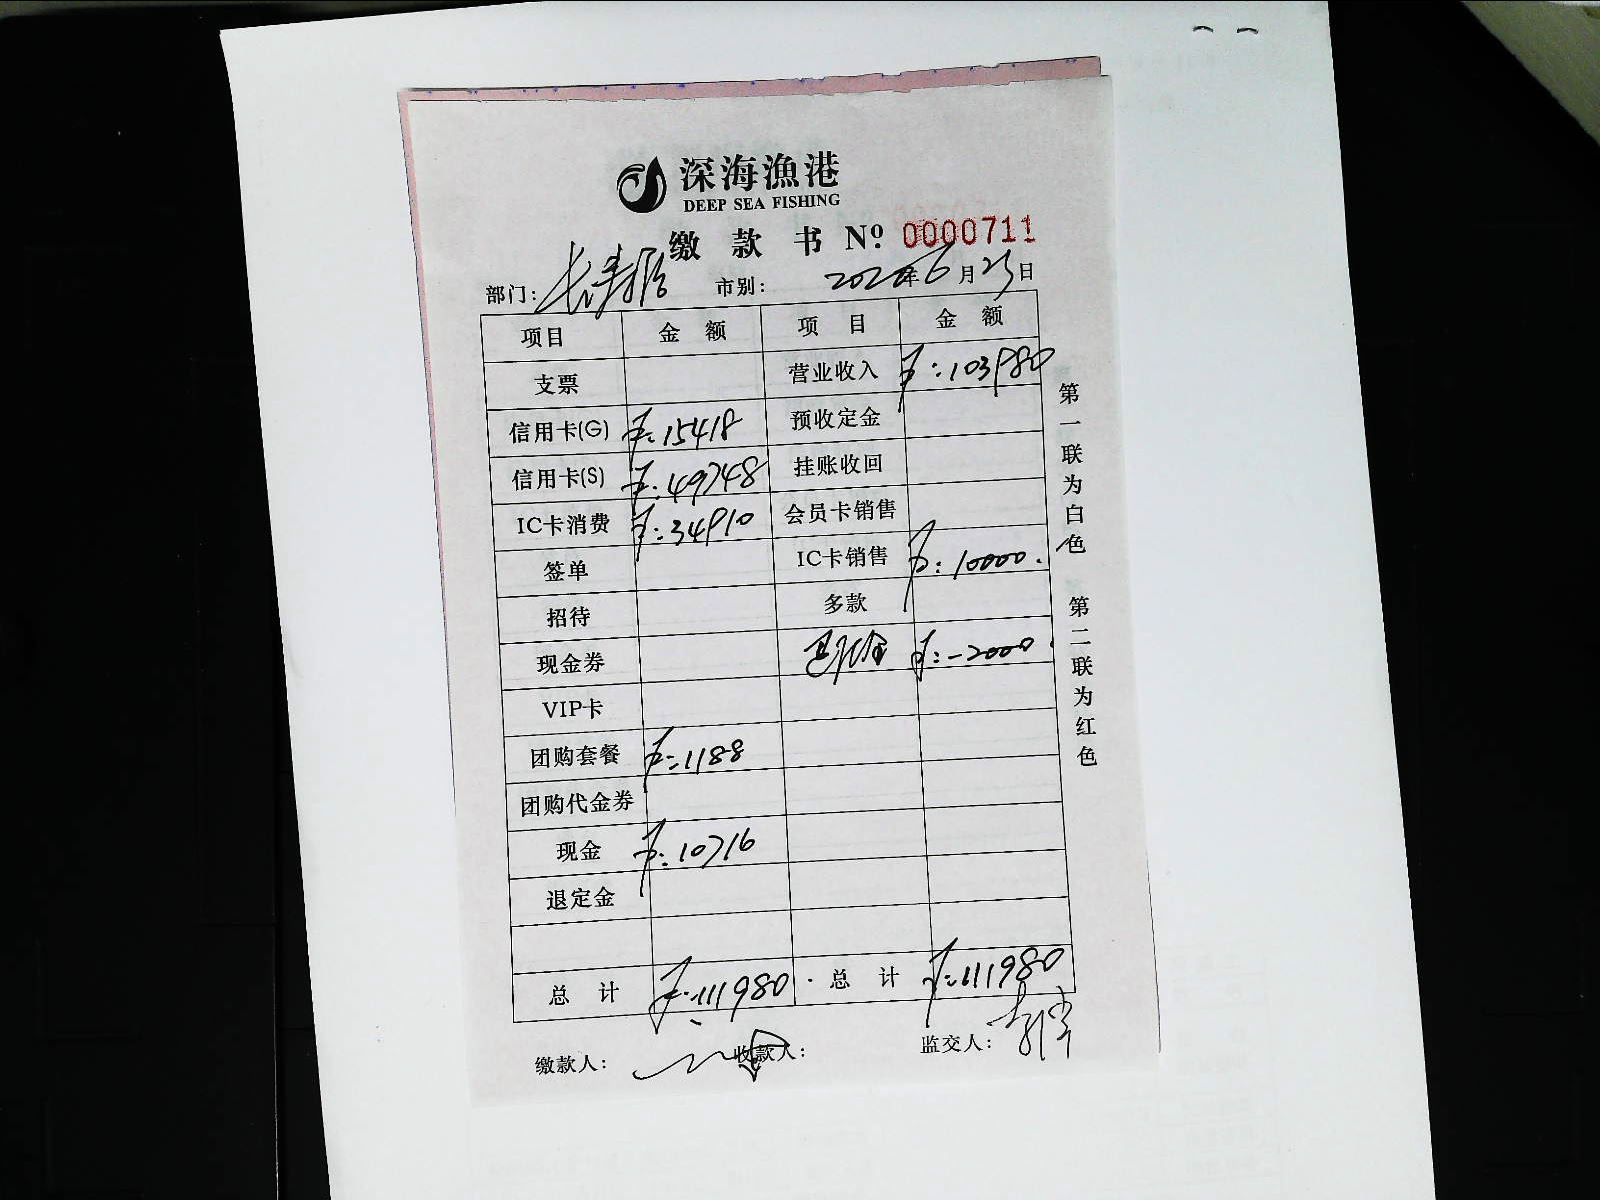 深海渔港
DEEP SEA FISHING
缴款书 Nº 0000711
部门: 市别: 2020年6月23日
项目 金额 项目 金额
支票 营业收入 ¥:103980
信用卡(G) ¥:15418 预收定金
信用卡(S) ¥:49748 挂账收回
IC卡消费 ¥:34910 会员卡销售
签单 IC卡销售 ¥:10000.
招待 多款
现金券 ¥:-2000.
VIP卡
团购套餐 ¥:1188
团购代金券
现金 ¥:10716
退定金
总计 ¥:111980 总计 ¥:111980
缴款人: 收款人: 监交人:
第一联为白色 第二联为红色